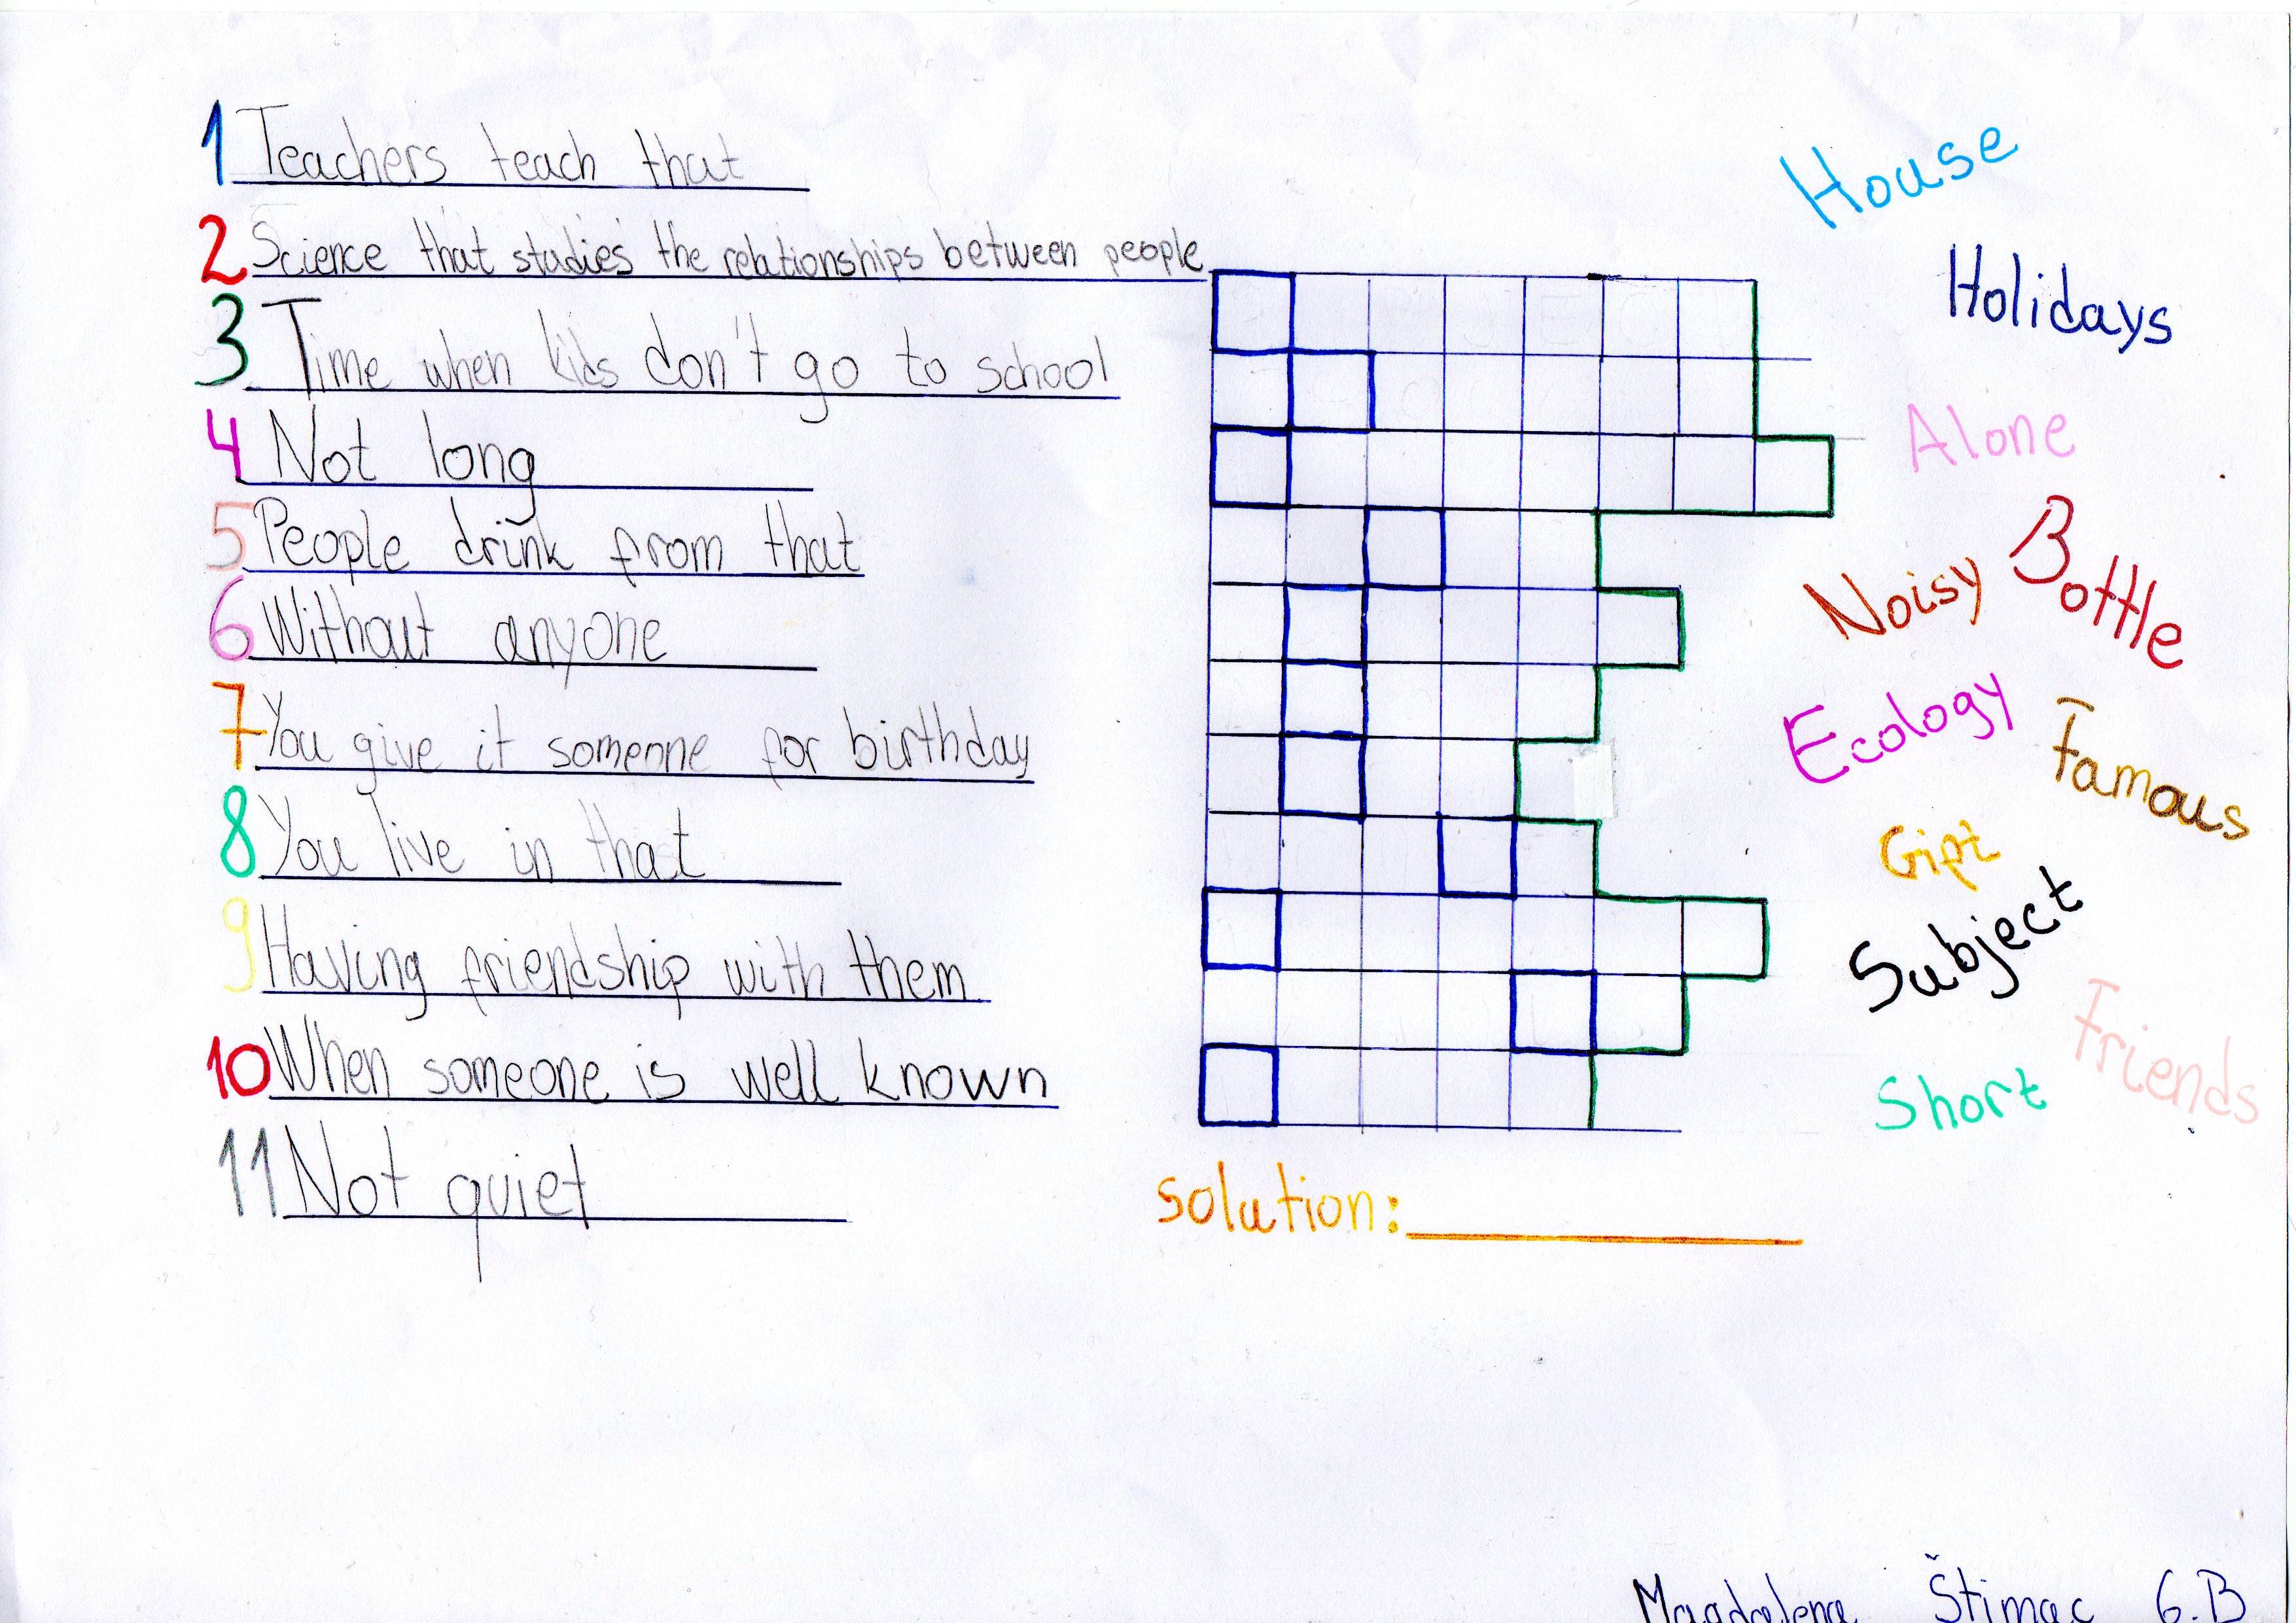 1 Teachers teach that
2 Science that studies the relationships between people
3 Time when kids don't go to school
4 Not long
5 People drink from that
6 Without anyone
7 You give it someone for birthday
8 You live in that
9 Having friendship with them
10 When someone is well known
11 Not quiet
House
Holidays
Alone
Bottle
Noisy
Ecology
Famous
Gift
Subject
Friends
Short
solution:
Magdalena Štimac 6.B